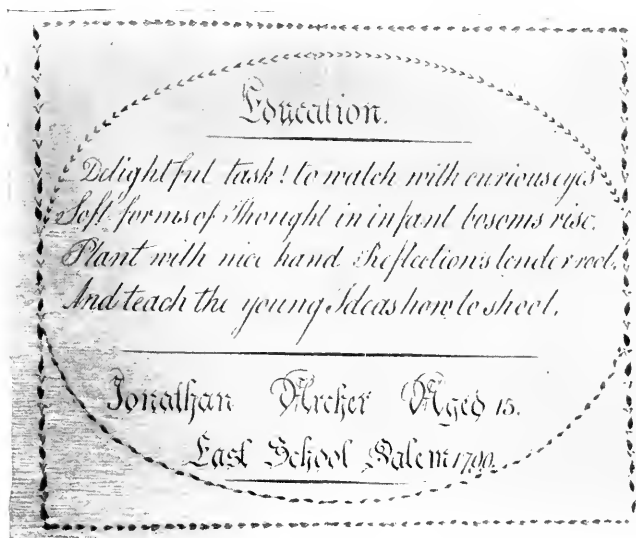 Education.
Delightful task! to watch with curious eyes
Soft forms of Thought in infant bosoms rise.
Plant with nice hand Reflection's tender root,
And teach the young Ideas how to shoot.
Jonathan Archer Aged 15.
East School Salem 1790.